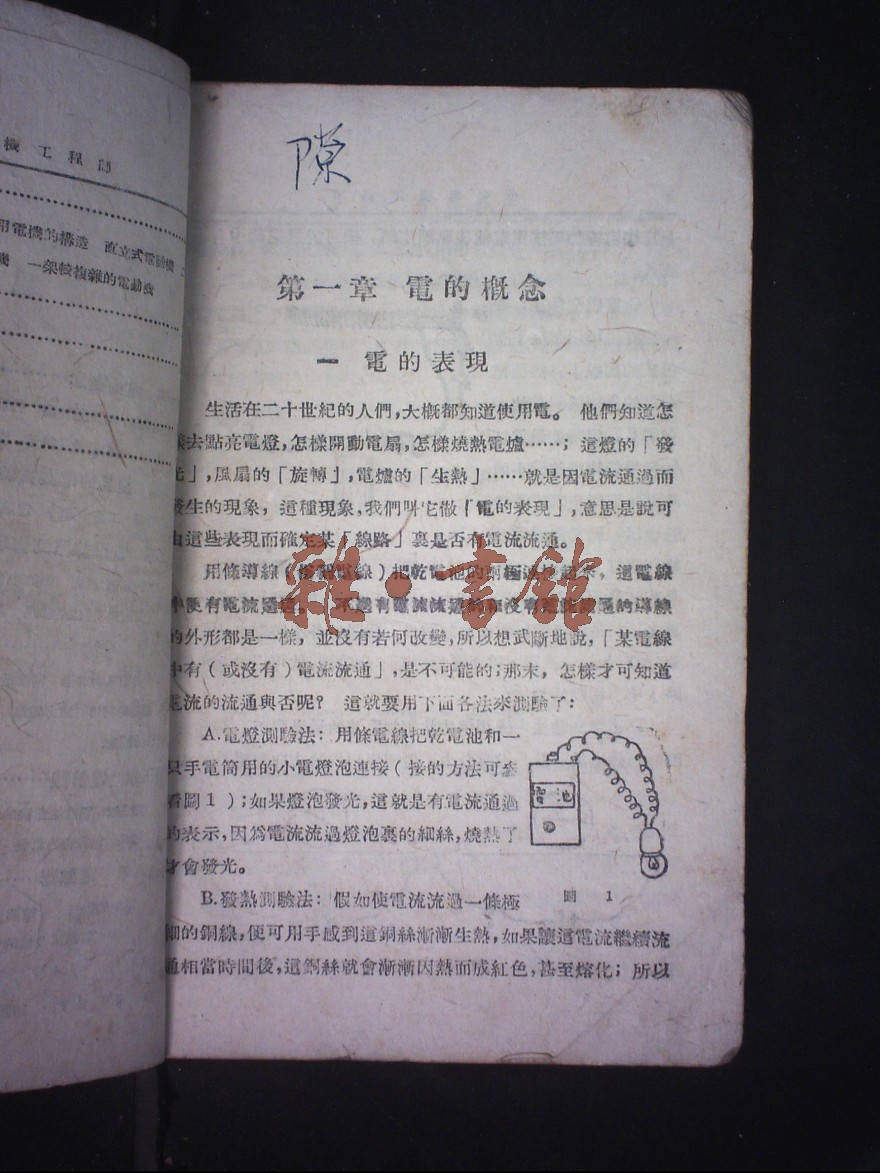 機工程師
用電機的構造 直立式電動機
機 一架較複雜的電動機
隙
第一章 電的概念
一 電的表現
生活在二十世紀的人們,大概都知道使用電。 他們知道怎
樣去點亮電燈,怎樣開動電扇,怎樣燒熱電爐……; 這燈的「發
光」,風扇的「旋轉」,電爐的「生熱」……就是因電流通過而
發生的現象, 這種現象,我們叫它做「電的表現」,意思是說可
由這些表現而確定某「線路」裏是否有電流流通。
用條導線( 電線)把乾電池的兩極連接起來, 這電線
中便有電流通過。 不過有電流流通的和沒有電流流通的導線
的外形都是一樣, 並沒有若何改變,所以想武斷地說,「某電線
中有(或沒有)電流流通」,是不可能的;那末, 怎樣才可知道
電流的流通與否呢? 這就要用下面各法來測驗了:
A.電燈測驗法: 用條電線把乾電池和一
只手電筒用的小電燈泡連接(接的方法可參
看圖1);如果燈泡發光,這就是有電流通過
的表示,因爲電流流過燈泡裏的細絲,燒熱了
才會發光。
電池
圖 1
B.發熱測驗法: 假如使電流流過一條極
細的銅線,便可用手感到這銅絲漸漸生熱,如果讓這電流繼續流
通相當時間後,這銅絲就會漸漸因熱而成紅色,甚至熔化; 所以
雜·書館